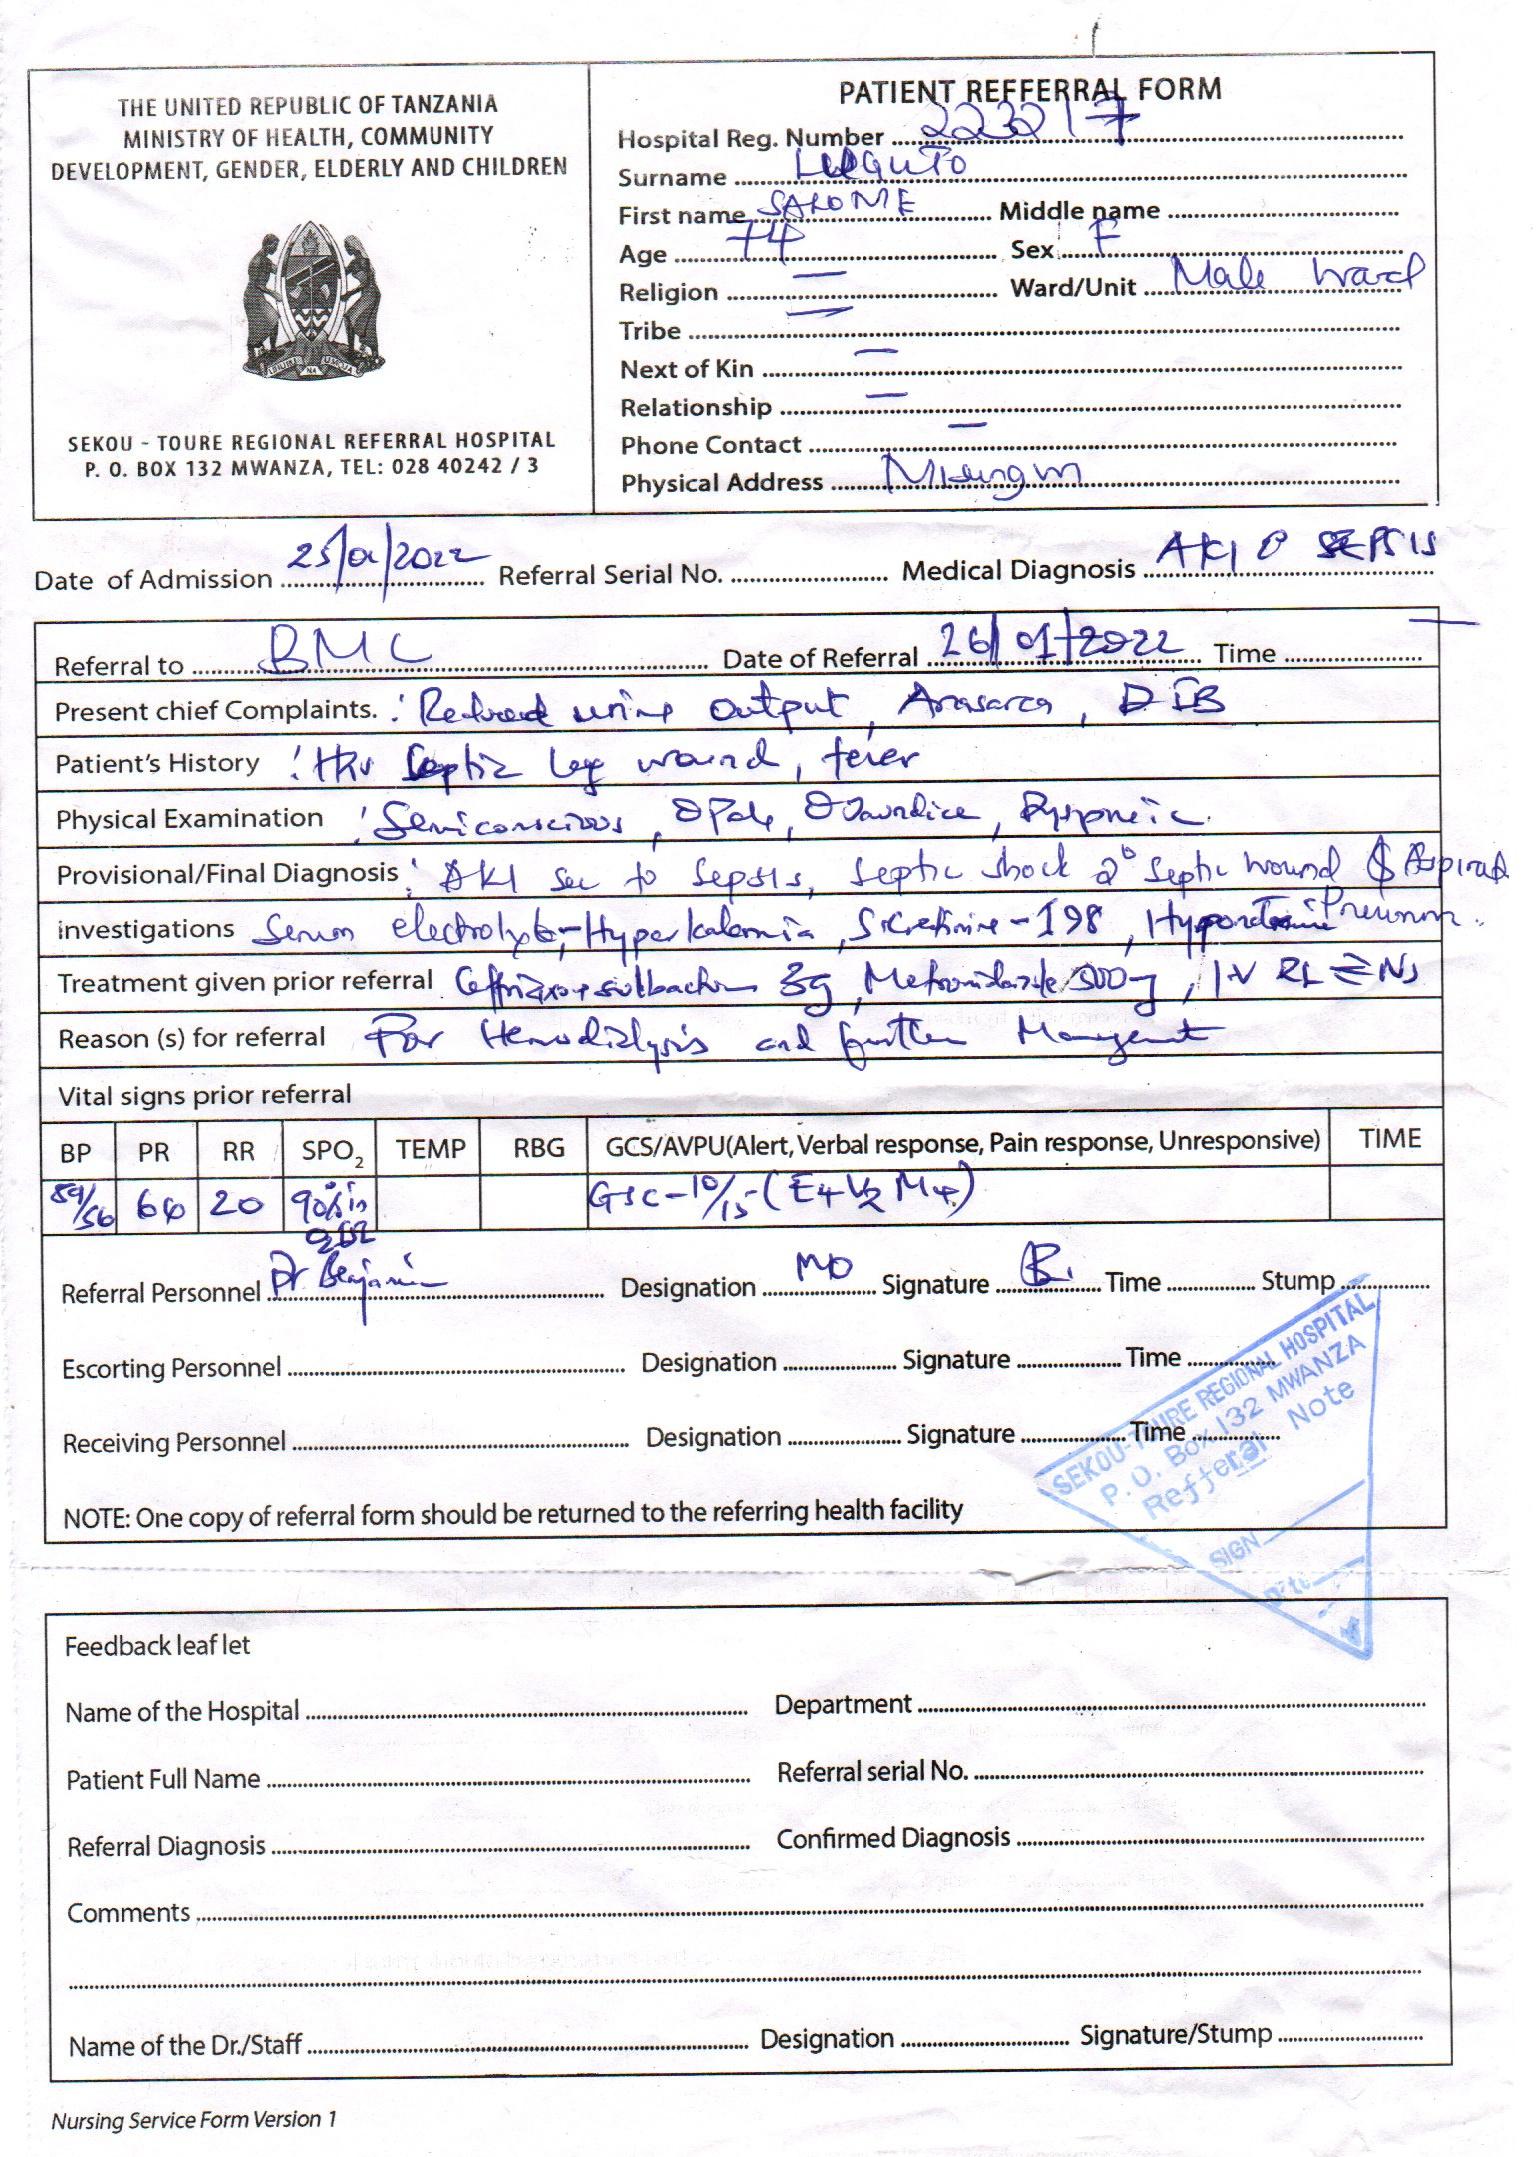 THE UNITED REPUBLIC OF TANZANIA
MINISTRY OF HEALTH, COMMUNITY
DEVELOPMENT, GENDER, ELDERLY AND CHILDREN
UHURU NA UMOJA
SEKOU - TOURE REGIONAL REFERRAL HOSPITAL
P. O. BOX 132 MWANZA, TEL: 028 40242 / 3
PATIENT REFFERRAL FORM
Hospital Reg. Number 223217
Surname
First name SALOME Middle name
Age 74 Sex F
Religion — Ward/Unit Male Ward
Tribe —
Next of Kin —
Relationship —
Phone Contact —
Physical Address
Date of Admission 25/01/2022 Referral Serial No. Medical Diagnosis AKI SEPSIS
Referral to BMC Date of Referral 26/01/2022 Time —
Present chief Complaints. : Reduced urine output, Anasarca, DIB
Patient's History : Septic leg wound, fever
Physical Examination : Semiconscious, Pale, Jaundice, Dyspneic.
Provisional/Final Diagnosis : AKI sec to sepsis, Septic shock 2° Septic wound
investigations Serum electrolyte - Hyperkalemia, S.creatinine - 198, Pneumon.
Treatment given prior referral sulbactam 3g, Metronidazole 500mg, I.V RL NS
Reason (s) for referral For Hemodialysis and further Management
Vital signs prior referral
BP PR RR SPO2 TEMP RBG GCS/AVPU(Alert, Verbal response, Pain response, Unresponsive) TIME
89/56 64 20 90% in GSC-10/15-(E4V2M4)
Referral Personnel Dr Benjamin Designation MD Signature B. Time Stump
Escorting Personnel Designation Signature Time
Receiving Personnel Designation Signature Time
SEKOU-TOURE REGIONAL HOSPITAL
P. O. Box 132 MWANZA
Refferal Note
SIGN
Date
NOTE: One copy of referral form should be returned to the referring health facility
Feedback leaf let
Name of the Hospital Department
Patient Full Name Referral serial No.
Referral Diagnosis Confirmed Diagnosis
Comments
Name of the Dr./Staff Designation Signature/Stump
Nursing Service Form Version 1